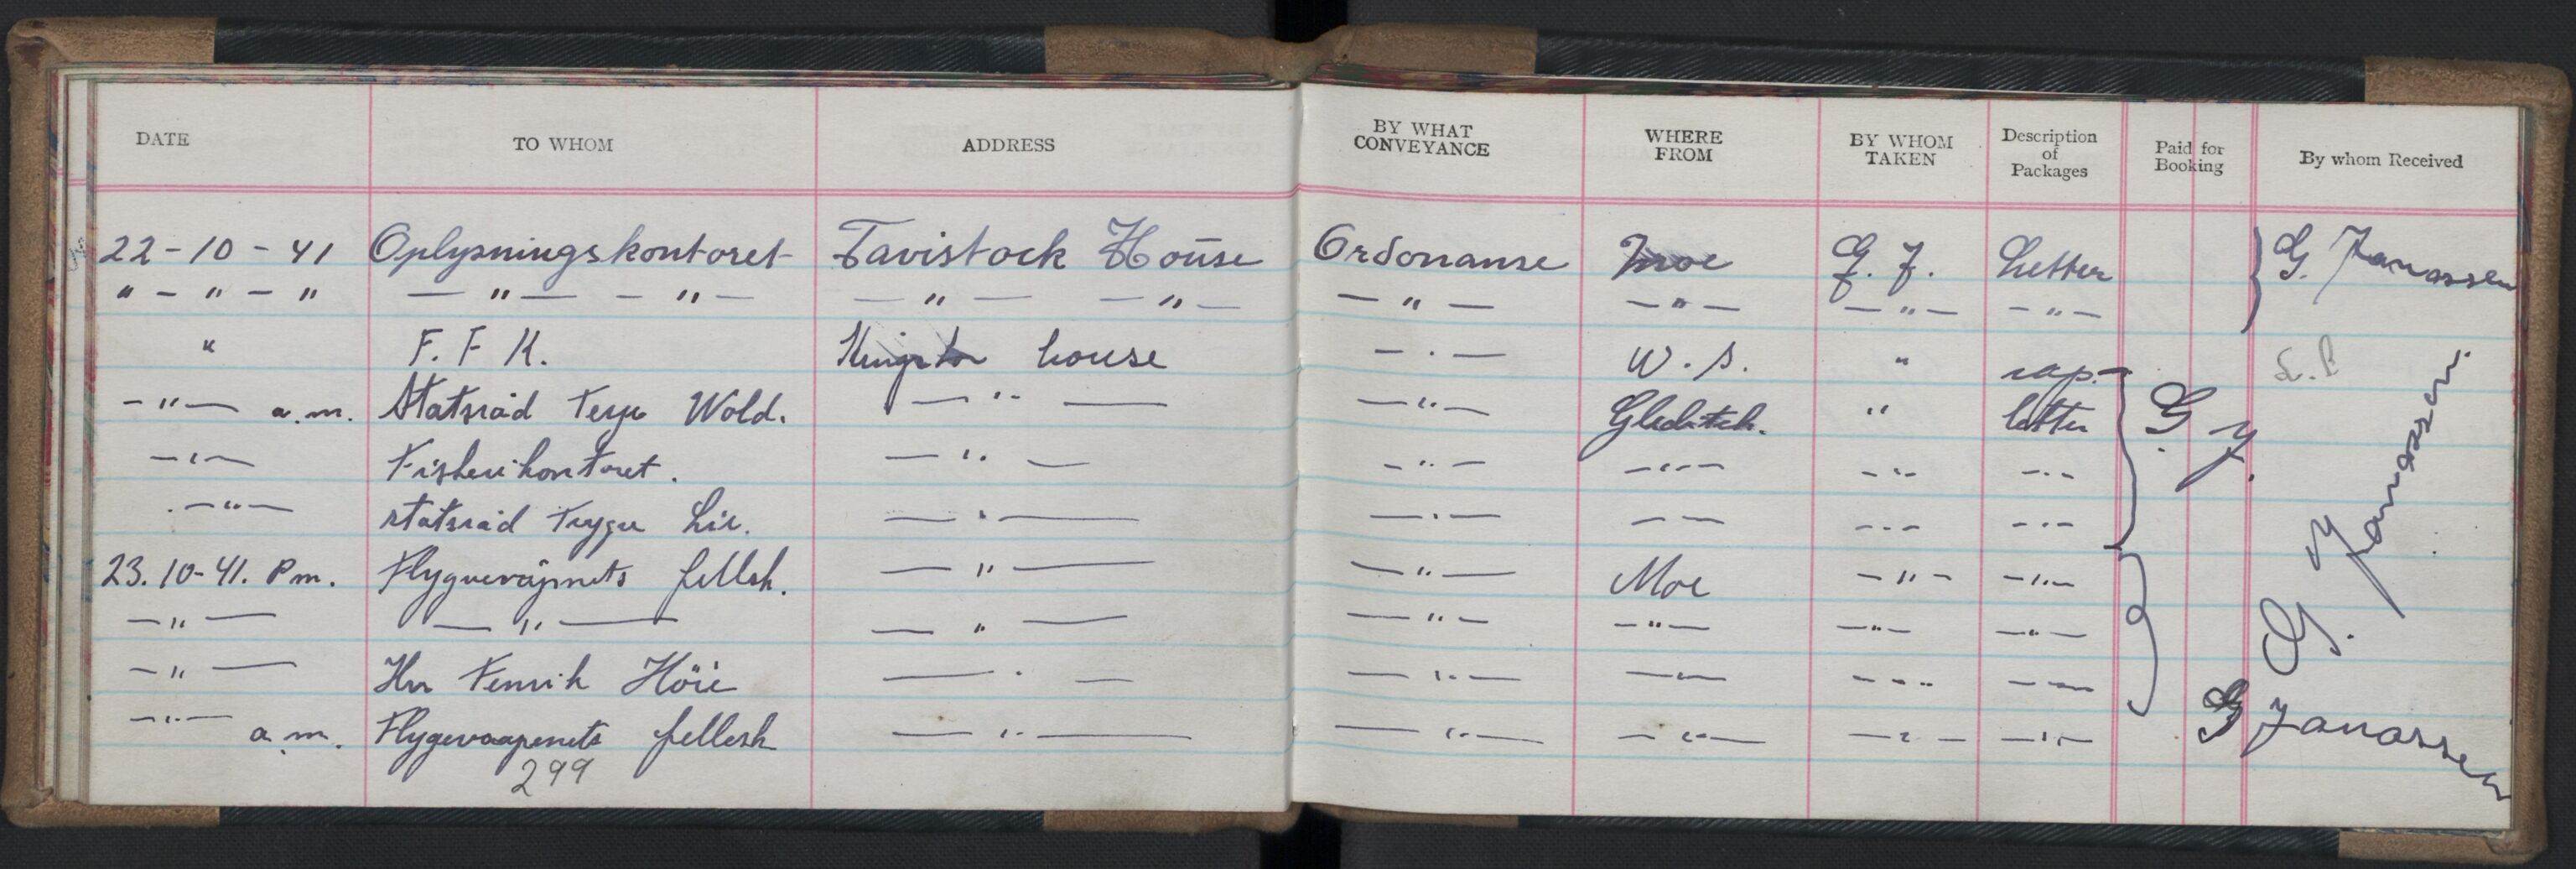 DATE TO WHOM ADDRESS BY WHAT CONVEYANCE WHERE FROM BY WHOM TAKEN Description of Packages Paid for Booking By whom Received
22-10-41 Oplysningskontoret Tavistock House Ordonanse Moe G. J. Letter G. Janassen
" - " - " — " — — " — — " — — " — — " — — " — — " — — " —
" F. F K. Kingston house — . — W. S. " rap.
— " — a.m. Statsråd Terje Wold. — " — — " — Gleditsch. " letter G J.
— " — Fiskerikontoret. — " — — " — — " — — " — — " —
— " — statsråd Trygve Lie. — " — — " — — — — " — — " —
23.10-41. Pm. Flyguevåpnets fellsk. — " — — " — Moe — " — — " — G. J Janassen.
— " — — " — — " — — " — — " — — " — — " —
— " — Hr Fenrik Höie — " — — " — — " — — " — — " —
— " — a.m. Flygevaapenets fellesk — " — — " — — " — — " — — " — G Janassen
299